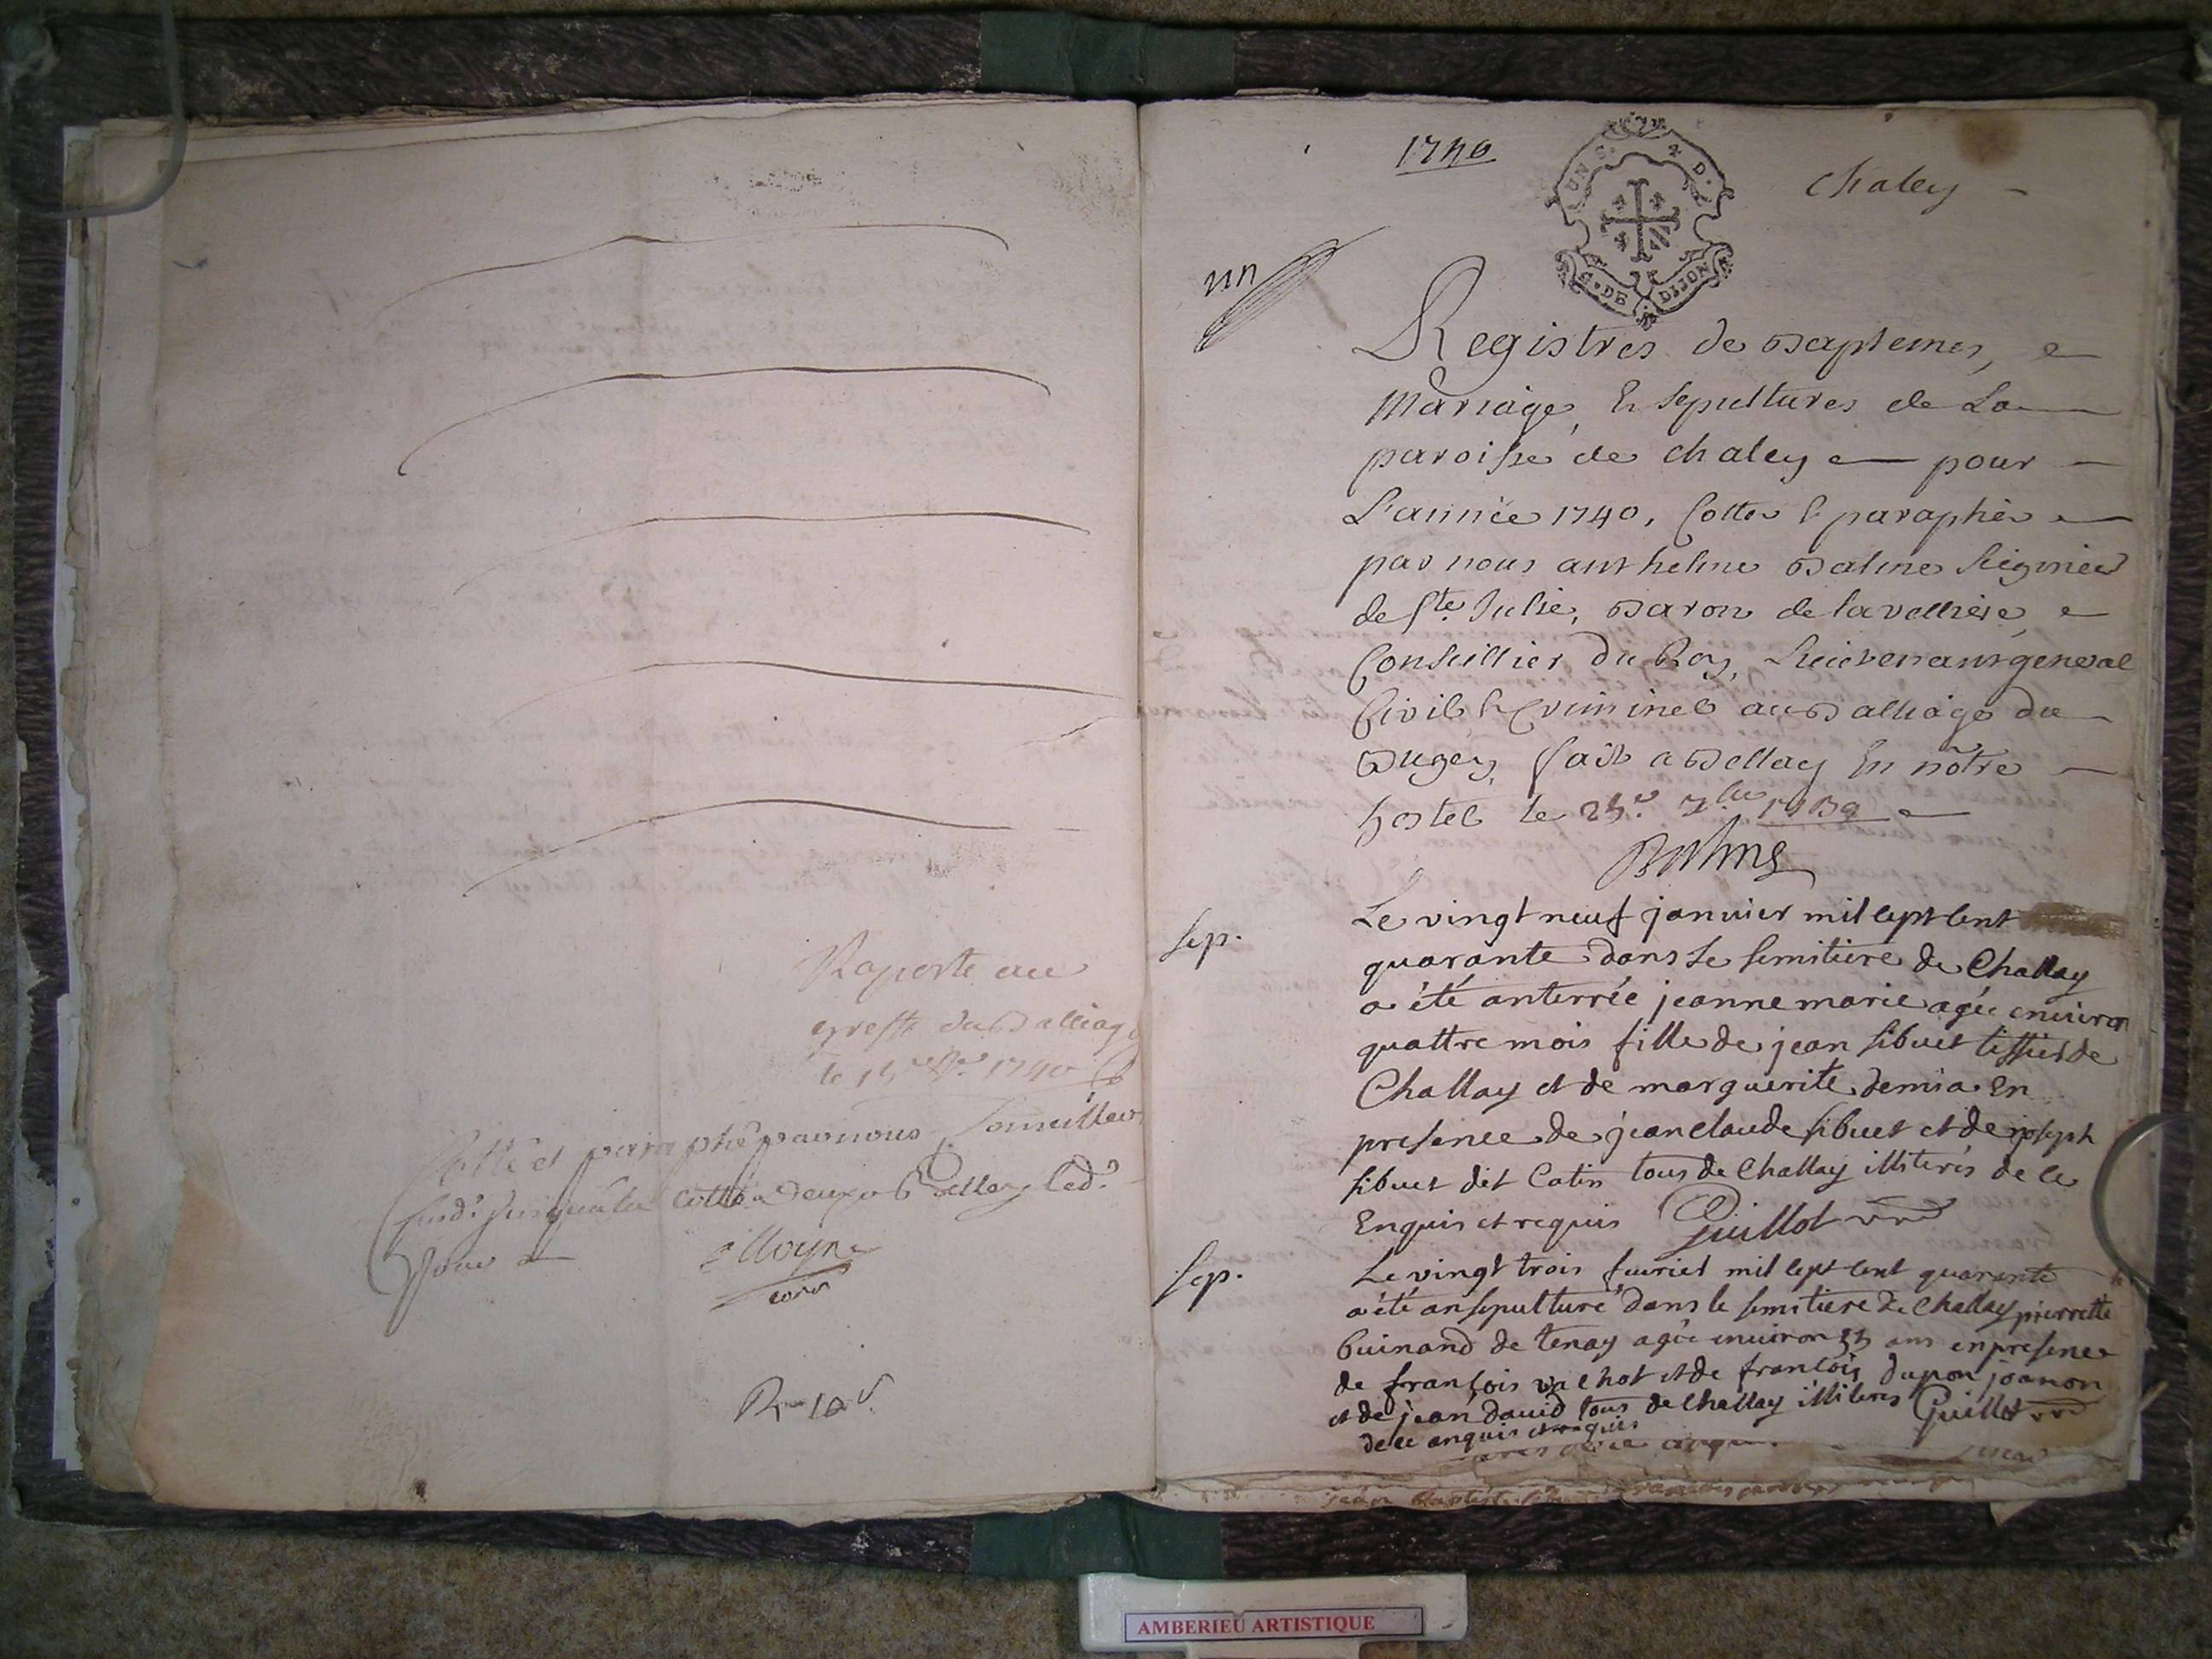 Raporté au
greffe du Balliage
le 1740
Cotté et paraphé par nous Conseiller
cotté a deux a Belley led.
jour
R 10 s.
1740
UN S. 4 D.
G. DE DIJON
chaley
un
Registres de Baptemes,
Mariage, Et sepultures de La
paroisse de chaley pour
L'année 1740, Cottes Et paraphés
par nous anthelme Balme seigneur
de Ste. Julie, Baron de la vellière,
Conseillier Du Roy, Lieutenant general
Civil Et Criminel au Balliage du
Bugey, fait a Belley En nôtre
hostel le 1739
Balme
Sep.
Le vingt neuf janvier mil sept cent
quarante dans le semitiere de Challay
a été anterrée jeanne marie agée environ
quattre mois fille de jean sibuet tissier de
Challay et de marguerite demia En
presence de jean claude sibuet et de joseph
sibuet dit Catin tous de Challay illiterés de ce
Enquis et requis Guillot
Sep.
Le vingt trois fevrier mil sept cent quarante
a été ansepulturé dans le semitiere de Challay pierrette
Guinand de tenay agée environ ans en presence
de françois vachot et de françois dupon joanon
et de jean david tous de Challay illiteres Guillot
de ce anquis et requis
AMBERIEU ARTISTIQUE